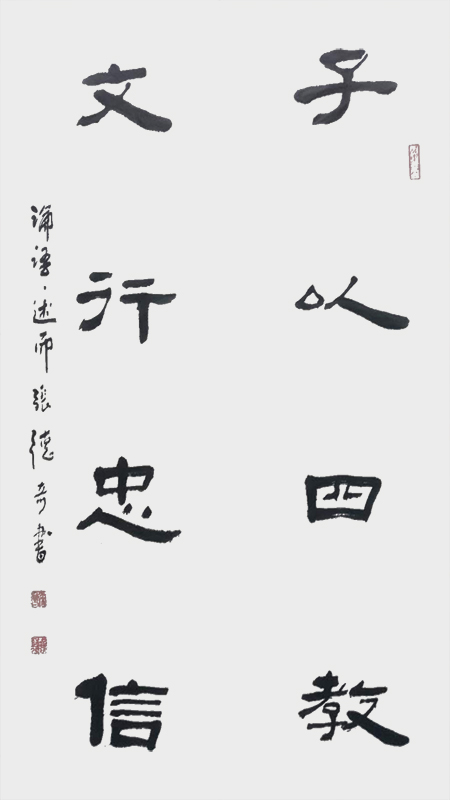 子以四教
文行忠信
論語·述而 張德奇書